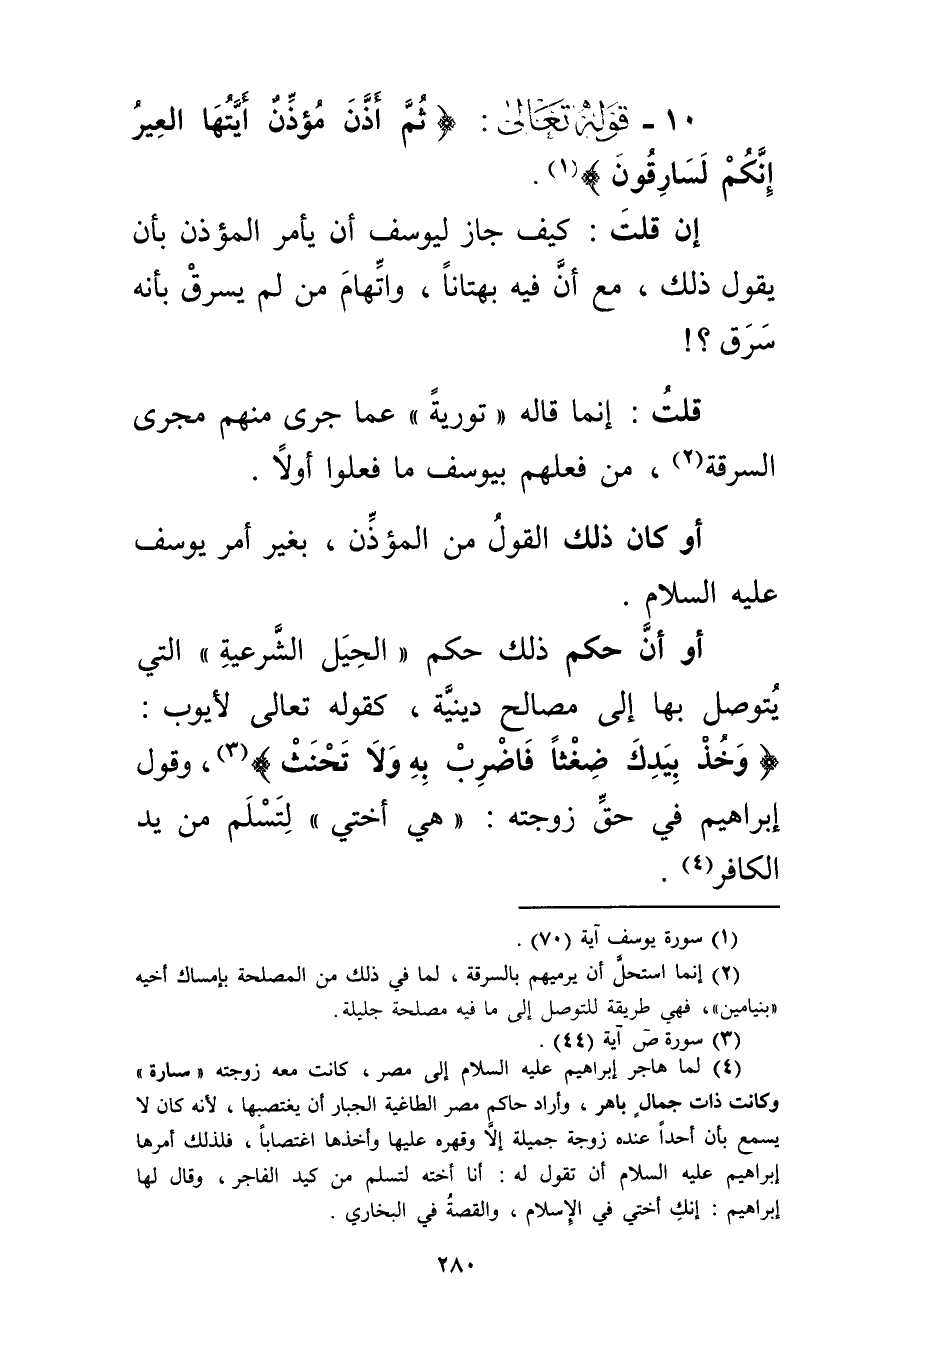 ١٠ - قَوْلُهُ تَعَالَىٰ : ﴿ ثُمَّ أَذَّنَ مُؤَذِّنٌ أَيَّتُهَا العِيرُ
إِنَّكُمْ لَسَارِقُونَ ﴾(١) .
إن قلتَ : كيف جاز ليوسف أن يأمر المؤذن بأن
يقول ذلك ، مع أنَّ فيه بهتاناً ، واتِّهامَ من لم يسرقْ بأنه
سَرَق ؟!
قلتُ : إنما قاله « توريةً » عما جرى منهم مجرى
السرقة(٢) ، من فعلهم بيوسف ما فعلوا أولاً .
أو كان ذلك القولُ من المؤذِّن ، بغير أمر يوسف
عليه السلام .
أو أنَّ حكم ذلك حكم « الحِيَل الشَّرعيةِ » التي
يُتوصل بها إلى مصالح دينيَّة ، كقوله تعالى لأيوب :
﴿ وَخُذْ بِيَدِكَ ضِغْثاً فَاضْرِبْ بِهِ وَلَا تَحْنَثْ ﴾(٣) ، وقول
إبراهيم في حقِّ زوجته : « هي أختي » لِتَسْلَم من يد
الكافر(٤) .
(١) سورة يوسف آية (٧٠) .
(٢) إنما استحلَّ أن يرميهم بالسرقة ، لما في ذلك من المصلحة بإمساك أخيه
«بنيامين»، فهي طريقة للتوصل إلى ما فيه مصلحة جليلة.
(٣) سورة صۤ آية (٤٤) .
(٤) لما هاجر إبراهيم عليه السلام إلى مصر ، كانت معه زوجته « سارة »
وكانت ذات جمالٍ باهر ، وأراد حاكم مصر الطاغية الجبار أن يغتصبها ، لأنه كان لا
يسمع بأن أحداً عنده زوجة جميلة إلَّا وقهره عليها وأخذها اغتصاباً ، فلذلك أمرها
إبراهيم عليه السلام أن تقول له : أنا أخته لتسلم من كيد الفاجر ، وقال لها
إبراهيم : إنكِ أختي في الإسلام ، والقصةُ في البخاري .
٢٨٠